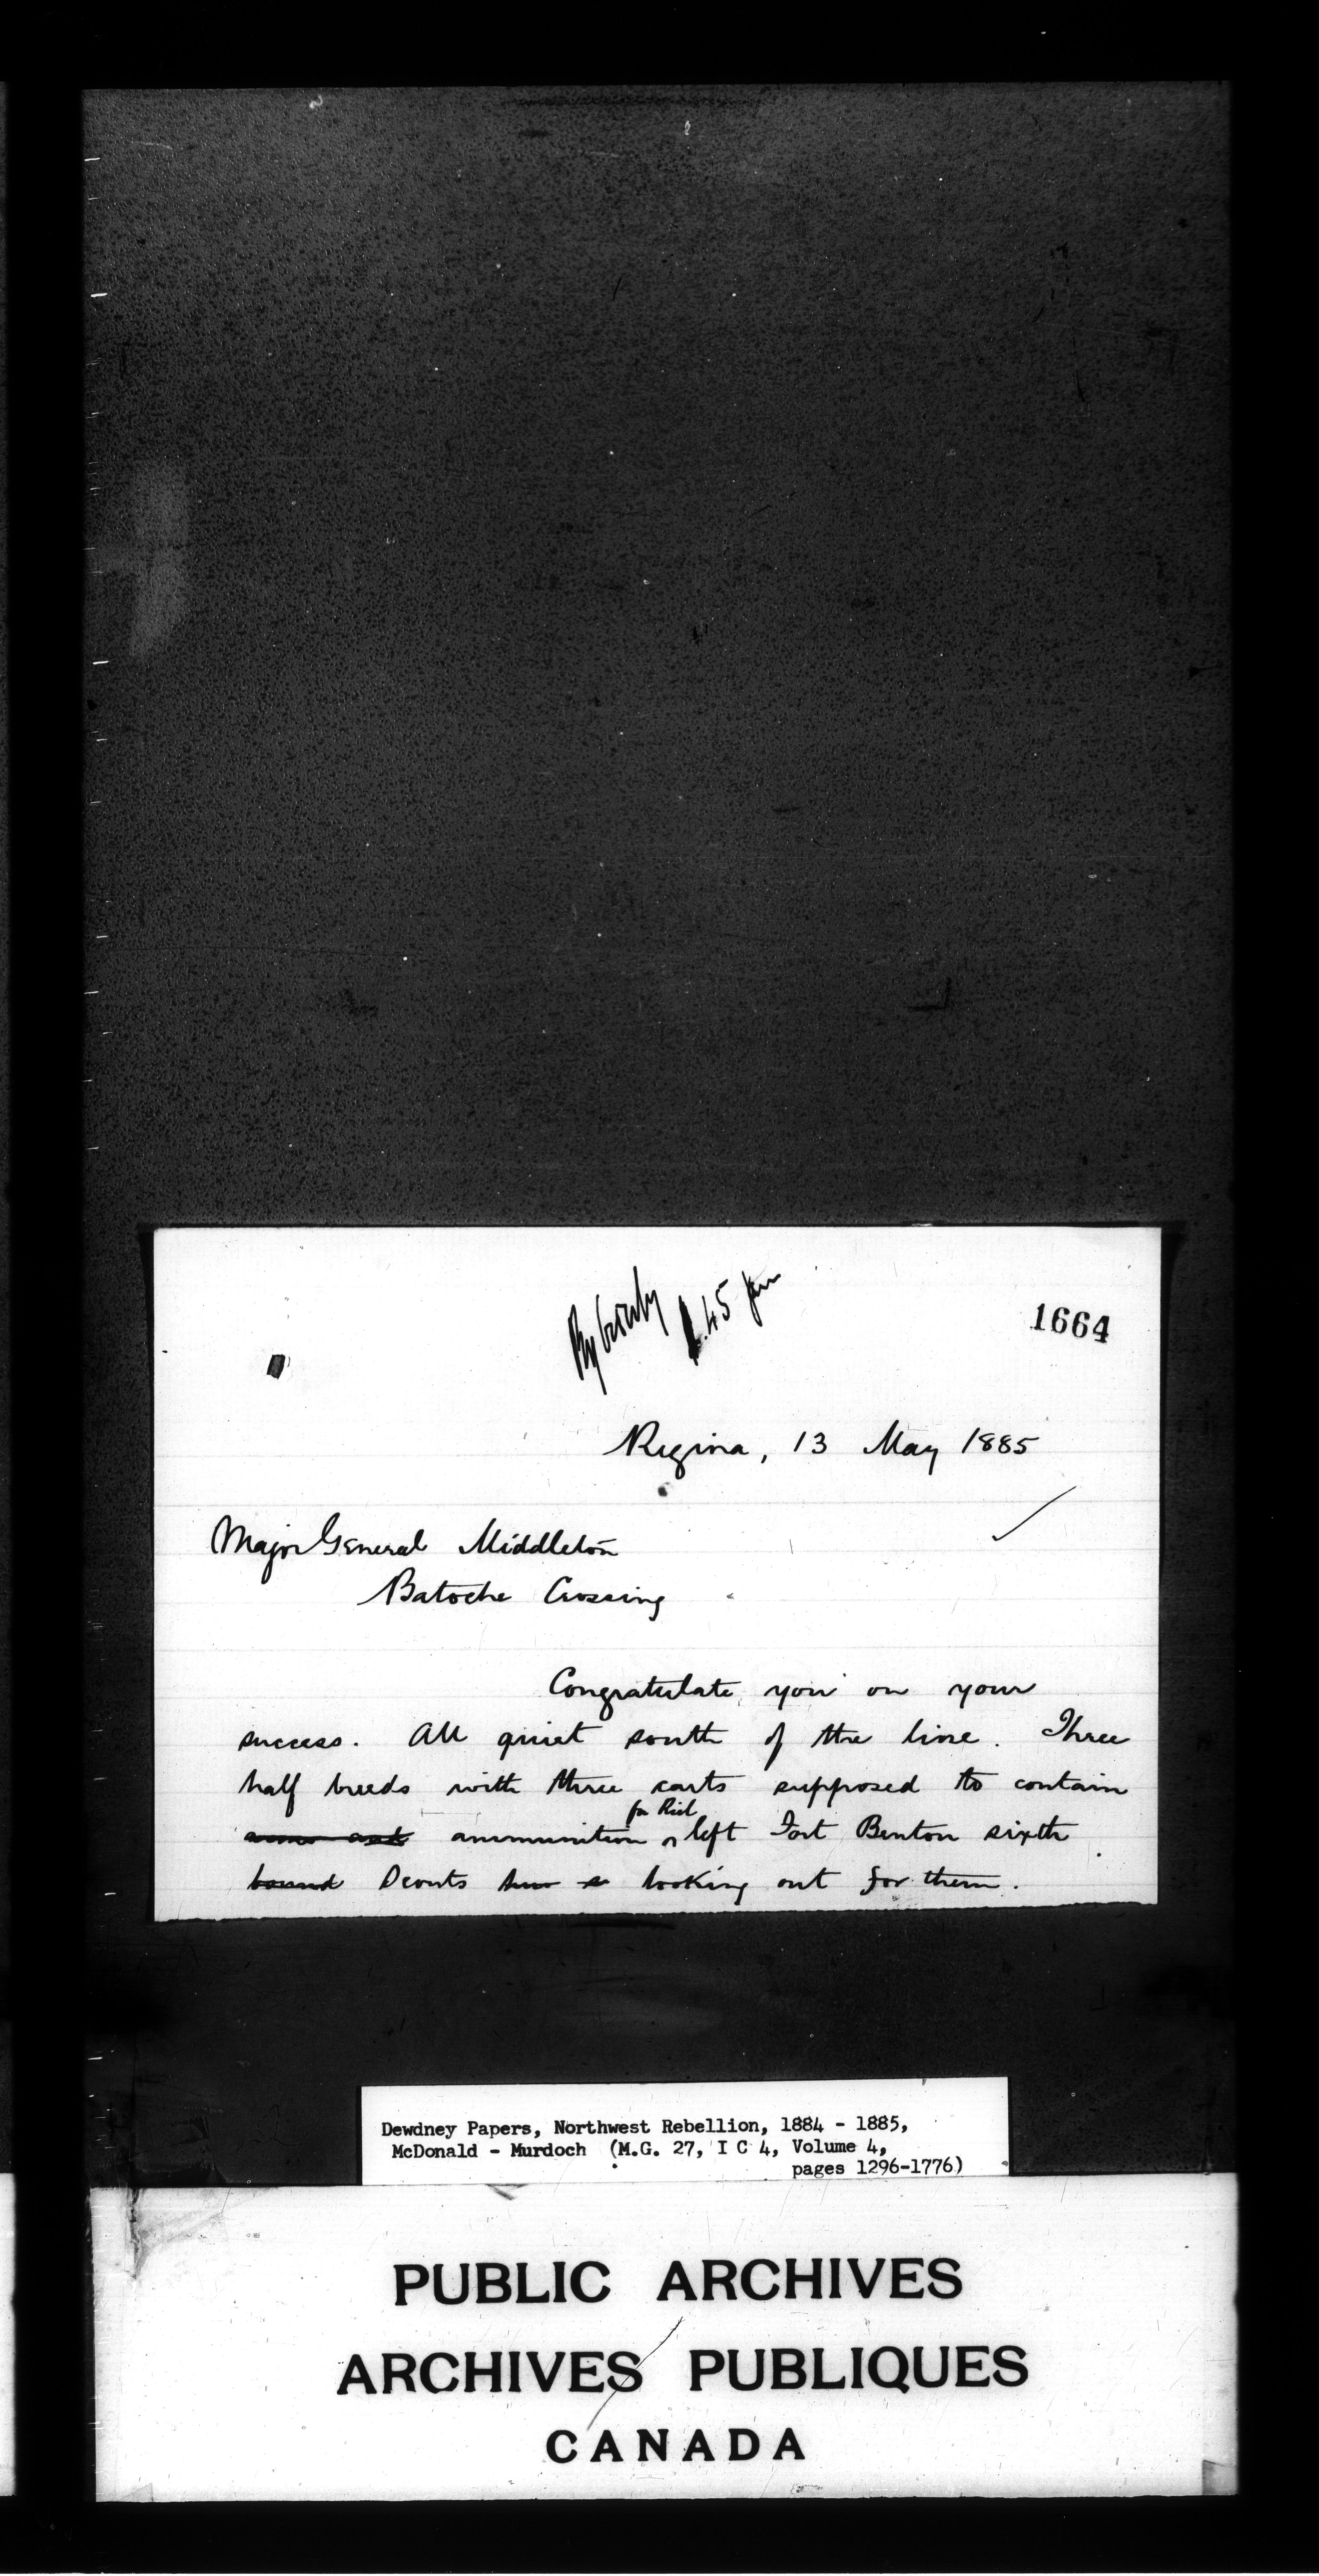 1.45 pm
1664
Regina, 13 May 1885
Major General Middleton
Batoche Crossing
Congratulate you on your
success. All quiet south of the line. Three
half breeds with three carts supposed to contain
for Riel
arms and ammunition left Fort Benton sixth
bound Scouts looking out for them.
Dewdney Papers, Northwest Rebellion, 1884 - 1885,
McDonald - Murdoch (M.G. 27, I C 4, Volume 4,
pages 1296-1776)
PUBLIC ARCHIVES
ARCHIVES PUBLIQUES
CANADA